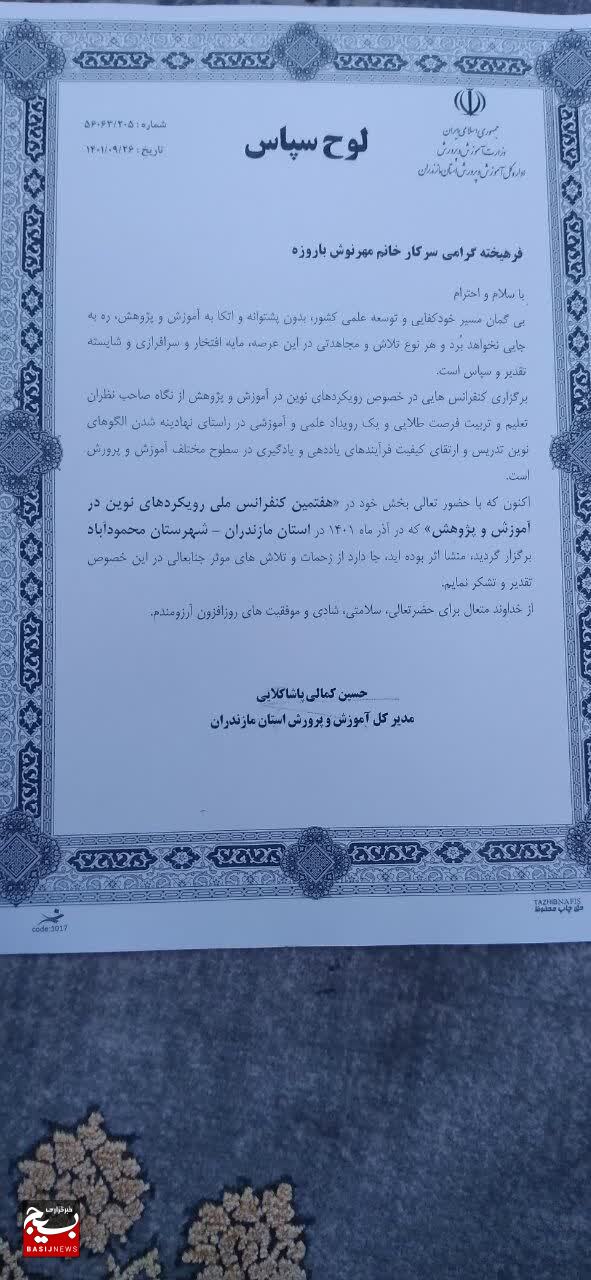 جمهوری اسلامی ایران
وزارت آموزش و پرورش
اداره کل آموزش و پرورش استان مازندران
لوح سپاس
شماره : ۵۶۰۶۳/۲۰۵
تاریخ : ۱۴۰۱/۰۹/۲۶
فرهیخته گرامی سرکار خانم مهرنوش باروزه
با سلام و احترام
بی گمان مسیر خودکفایی و توسعه علمی کشور، بدون پشتوانه و اتکا به آموزش و پژوهش، ره به
جایی نخواهد بُرد و هر نوع تلاش و مجاهدتی در این عرصه، مایه افتخار و سرافرازی و شایسته
تقدیر و سپاس است.
برگزاری کنفرانس هایی در خصوص رویکردهای نوین در آموزش و پژوهش از نگاه صاحب نظران
تعلیم و تربیت فرصت طلایی و یک رویداد علمی و آموزشی در راستای نهادینه شدن الگوهای
نوین تدریس و ارتقای کیفیت فرآیندهای یاددهی و یادگیری در سطوح مختلف آموزش و پرورش
است.
اکنون که با حضور تعالی بخش خود در «هفتمین کنفرانس ملی رویکردهای نوین در
آموزش و پژوهش» که در آذر ماه ۱۴۰۱ در استان مازندران – شهرستان محمودآباد
برگزار گردید، منشا اثر بوده اید، جا دارد از زحمات و تلاش های موثر جنابعالی در این خصوص
تقدیر و تشکر نمایم.
از خداوند متعال برای حضرتعالی، سلامتی، شادی و موفقیت های روزافزون آرزومندم.
حسین کمالی پاشاکلایی
مدیر کل آموزش و پرورش استان مازندران
code:1017
TAZHIBNAFIS
حق چاپ محفوظ
خبرگزاری
بسیج
BASIJNEWS